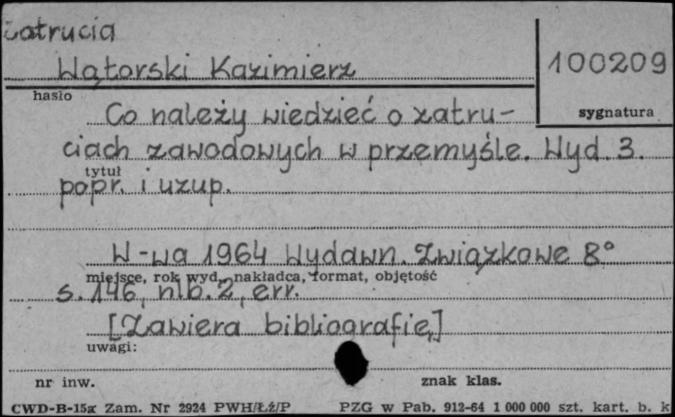 zatrucia
Wątorski Kazimierz
100209
hasło
sygnatura
Co należy wiedzieć o zatru-
ciach zawodowych w przemyśle. Wyd. 3.
tytuł
popr. i uzup.
W-wa 1964 Wydawn. Związkowe 8°
miejsce, rok wyd., nakładca, format, objętość
s. 146, nlb. 2, err.
[Zawiera bibliografię]
uwagi:
nr inw.
znak klas.
CWD-B-15x Zam. Nr 2924 PWH/Łź/P PZG w Pab. 912-64 1 000 000 szt. kart. b. k